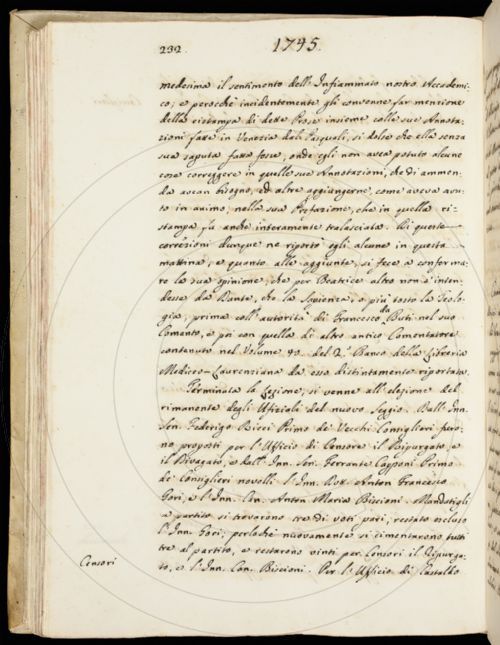 232.
1745.
medesima il sentimento dell'Infiammato nostro Accademi-
co; e perochè incidentemente gli convenne far menzione
della ristampa di dette Prose insieme colle sue Annota-
zioni fatta in Venezia dal Pasquali, si dolse che ella senza
sua saputa fatta fosse, onde egli non avea potuto alcune
cose correggere in quelle sue Annotazioni, che di ammen-
da avean bisogno, ed altre aggiungerne, come aveva avu-
to in animo, nella sua Prefazione, che in quella ri-
stampa fu anche interamente tralasciata. Di queste
correzioni dunque ne riportò egli alcune in questa
mattina; e quanto alle aggiunte, si fece a conferma-
re la sua opinione, che per Beatrice altro non s'inten-
desse da Dante, che la Sapienza, o più tosto la Teolo-
gia, prima coll'autorità di Francesco da Buti nel suo
Comento, e poi con quella di altro antico Comentatore
contenuto nel Volume 40. del 2.° Banco della Libreria
Mediceo-Laurenziana da esso distintamente riportata.
Terminata la Lezione, si venne all'elezione del
rimanente degli Ufiziali del nuovo Seggio. Dall'Inn.
Sen. Federigo Ricci Primo de' Vecchi Consiglieri furo-
no proposti per l'Ufficio di Censore il Ripurgato, e
il Divagato, e dall'Inn. Sen. Ferrante Capponi Primo
de' Consiglieri novelli l'Inn. Anton Francesco
Gori, e l'Inn. Can. Anton Maria Biscioni. Mandatigli
a partito si trovarono tre di voti pari, restato escluso
l'Inn. Gori; perlochè nuovamente si cimentarono tutti
tre al partito, e restarono vinti per Censori il Ripurga-
Censori
to, e l'Inn. Can. Biscioni. Per l'Ufficio di Castaldo